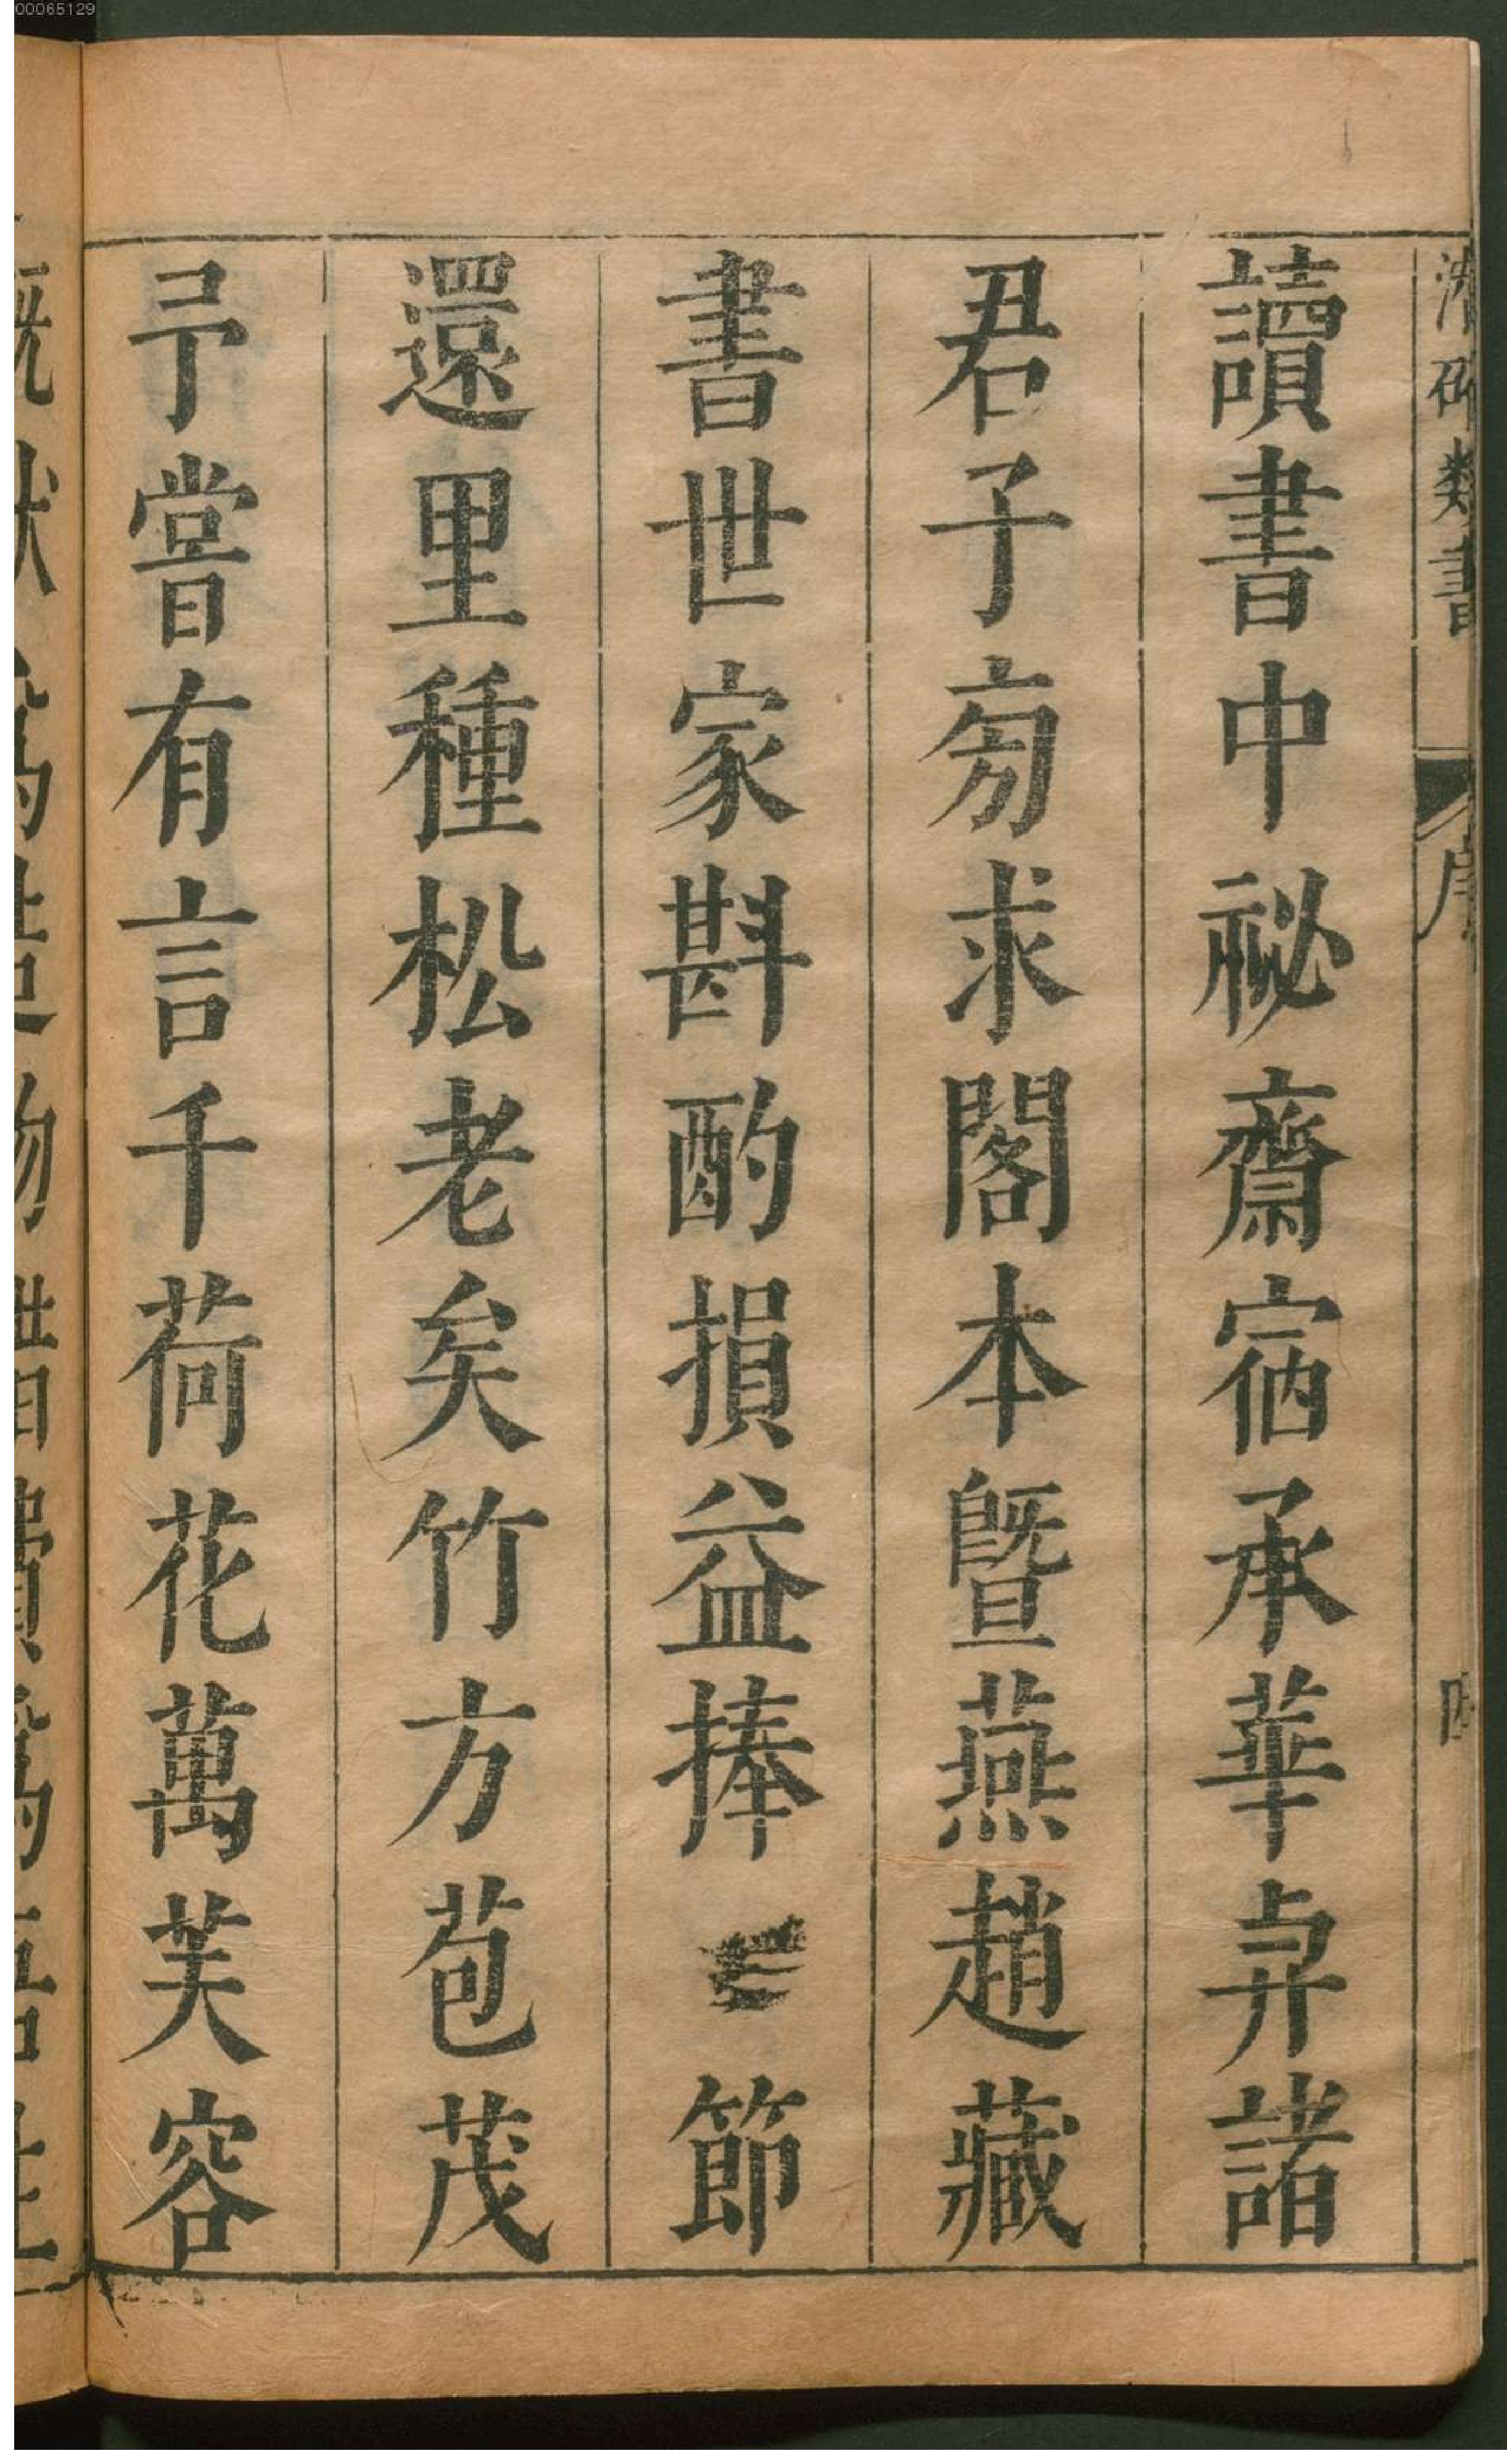 00065129
潛确類書
序
四
讀書中祕齋宿承華與諸
君子旁求閣本曁燕趙藏
書世家斟酌損益捧節
還里種松老矣竹方苞茂
予嘗有言千荷花萬芙容